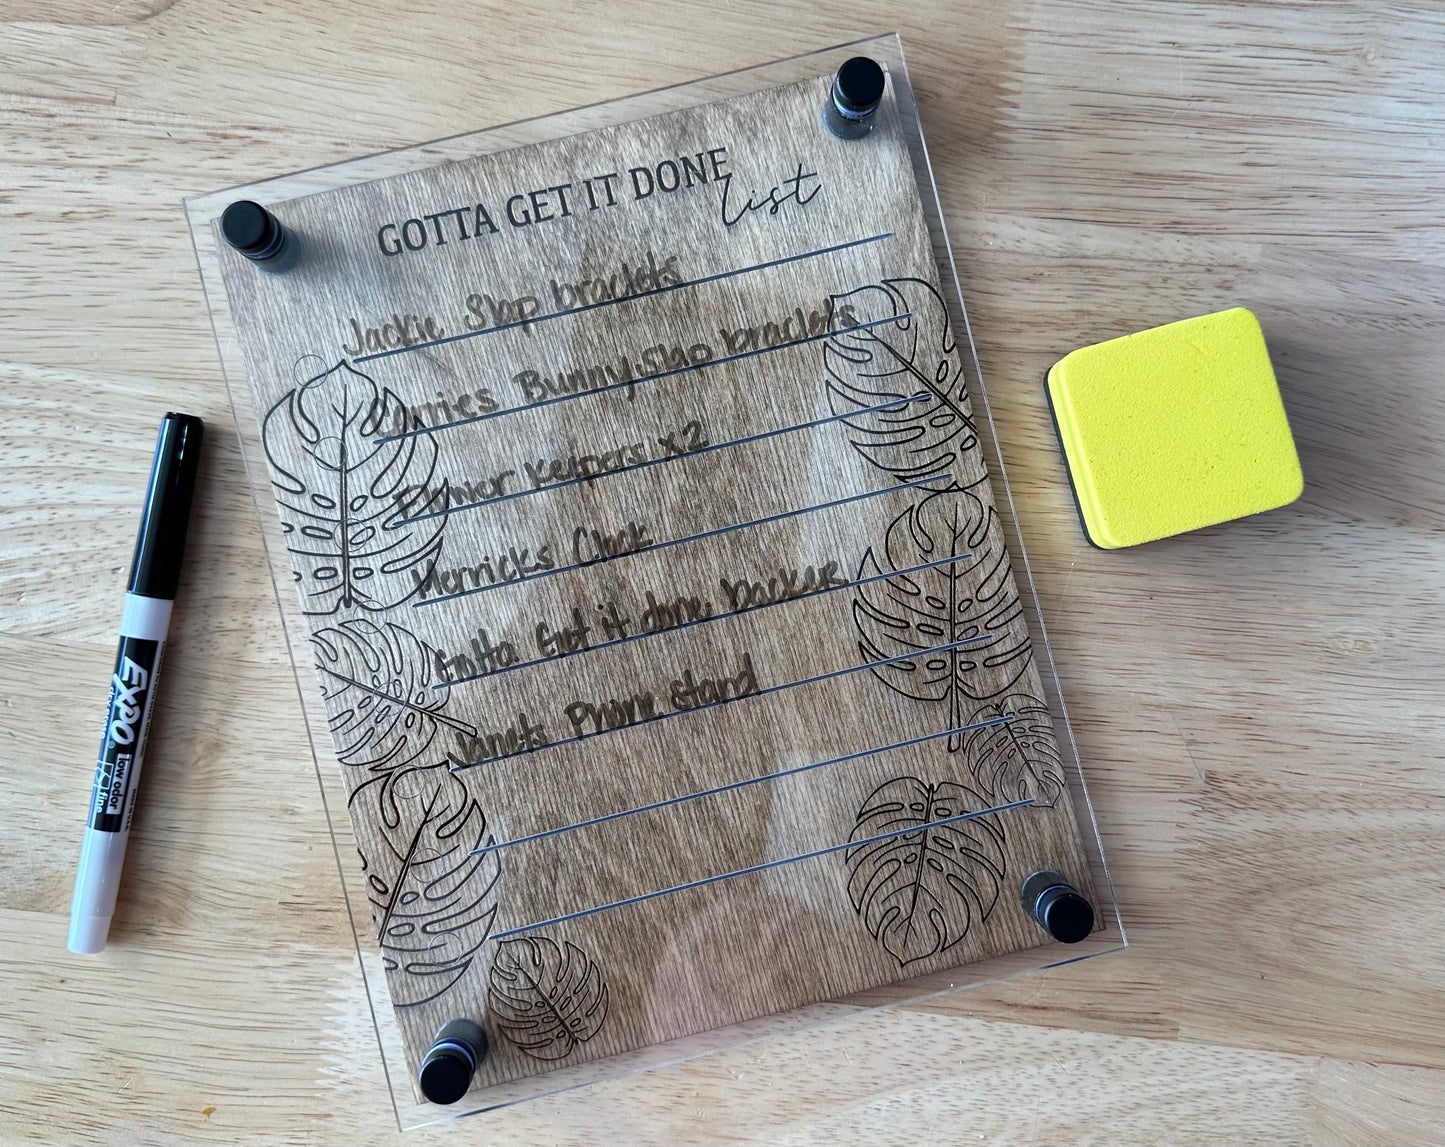 GOTTA GET IT DONE
list
Jackie Slap braclets
Corries Bunny Slap braclets
Planner Keepers x2
Merricks Clock
Gotta Get it done backer
Janets Phone Stand
EXPO
low odor
fine